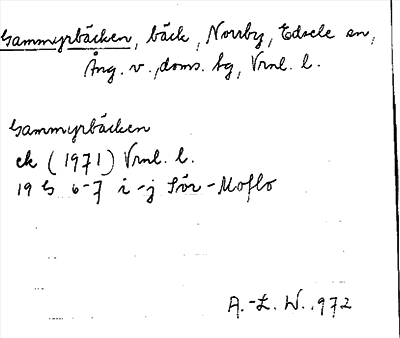 Gammyrbäcken, bäck, Norrby, Edsele sn,
Ång. v. doms. bg, Vrnl. l.
Gammyrbäcken
ek (1971) Vrnl. l.
19 G 6-7 i-j Sör-Moflo
A.-L. W. 1972